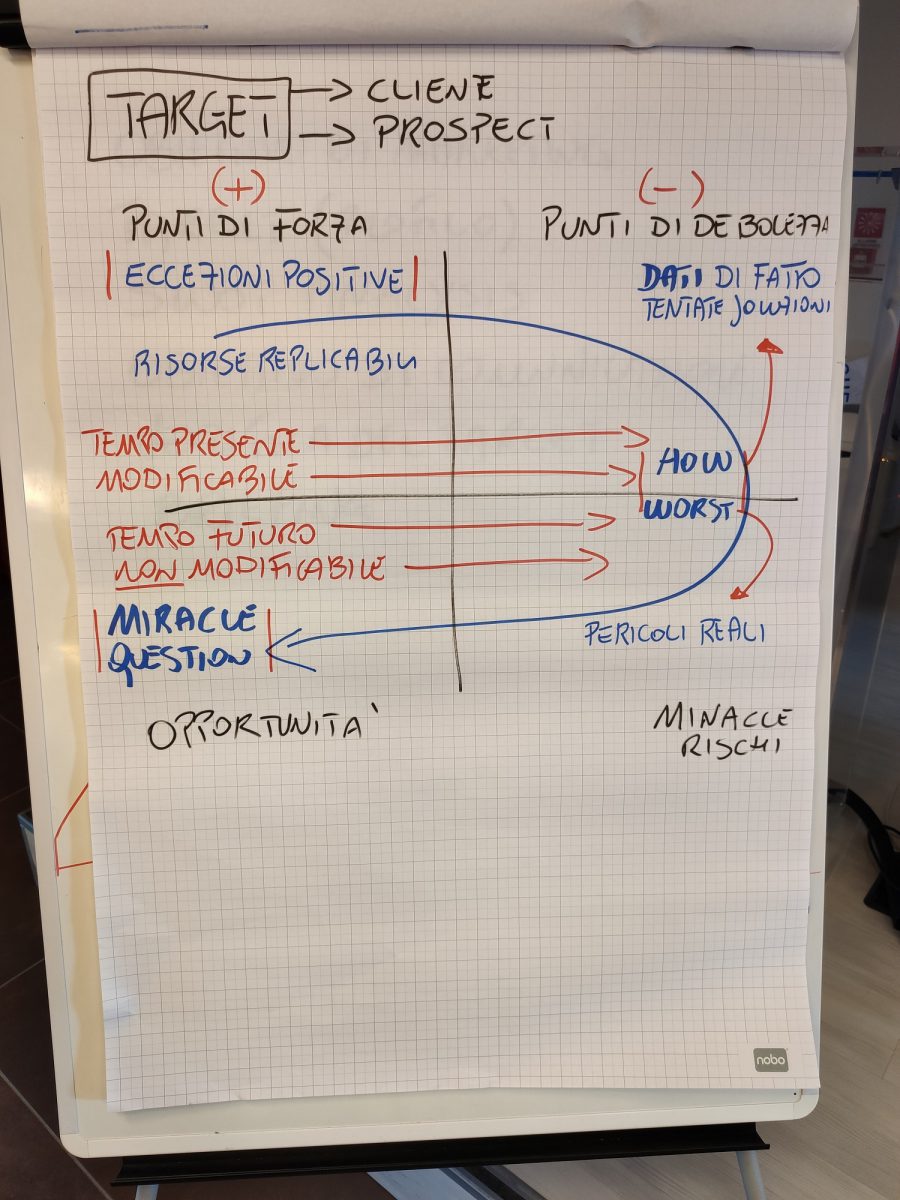 TARGET → CLIENTE
→ PROSPECT
(+)
PUNTI DI FORZA
| ECCEZIONI POSITIVE |
RISORSE REPLICABILI
(-)
PUNTI DI DEBOLEZZA
DATI DI FATTO
TENTATE SOLUZIONI
TEMPO PRESENTE
MODIFICABILE
HOW
WORST
TEMPO FUTURO
NON MODIFICABILE
MIRACLE
QUESTION
PERICOLI REALI
OPPORTUNITA'
MINACCE
RISCHI
nobo